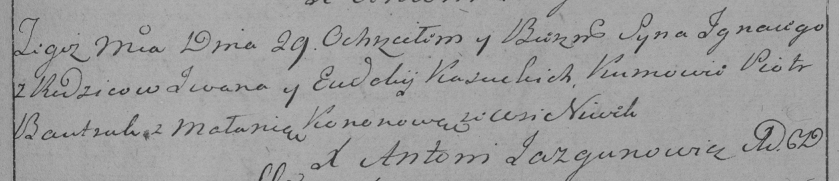 Tegoż Mca Dnia 29. Ochrzciłem y Birzm. Syna Ignacego
z Rodzicow Iwana y Eudokij Kasuckich, Kumowie Piotr
Bautruk z Małanią Kononową ze wsi Niwik
X Antoni Jazgunowicz AD.